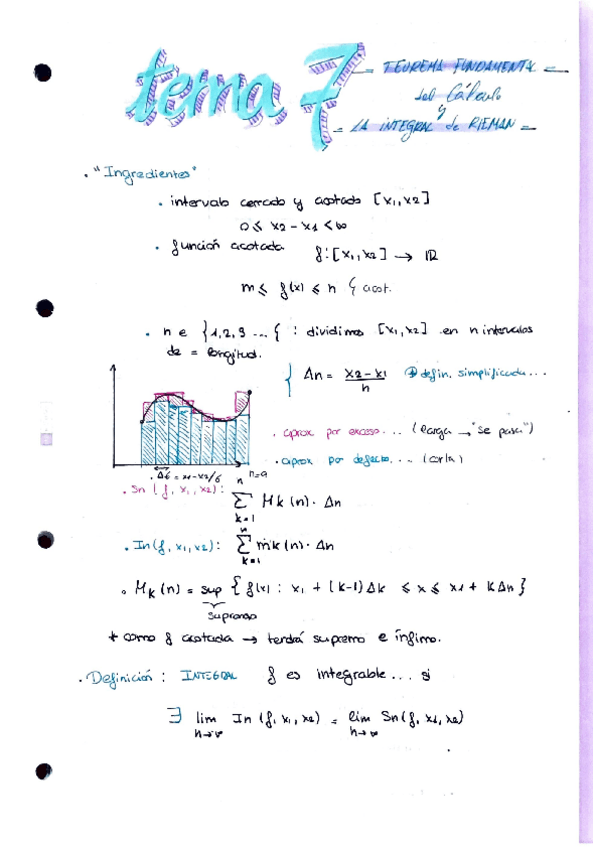 tema 7
= TEOREMA FUNDAMENTAL =
del Cálculo
y
= LA INTEGRAL de RIEMAN =
. "Ingredientes"
. intervalo cerrado y acotado [x₁,x2]
0 ≤ x2 - x1 < ∞
. función acotada f: [x₁,x2] → IR
m ≤ f(x) ≤ n { acot.
. n e {1,2,3 ... { : dividimos [x₁,x2] en n intervalos
de = longitud.
Δn = x2-x1 / n defin. simplificada...
. aprox por exceso... (larga → "se pasa")
. aprox por defecto... (corta)
. Δ6 = x1-x2/6
. Sn (f, x₁, x2): n Σ k=1 Mk (n) · Δn
. In (f, x₁, x2): n Σ k=1 mk (n) · Δn
. Mk (n) = sup { f(x) : x₁ + (k-1) Δk ≤ x ≤ x1 + kΔn }
supremo
+ como f acotada → tendrá supremo e ínfimo.
. Definición : INTEGRAL f es integrable... si
∃ lim n→∞ In (f, x₁, x2) = lim n→∞ Sn (f, x1, x2)